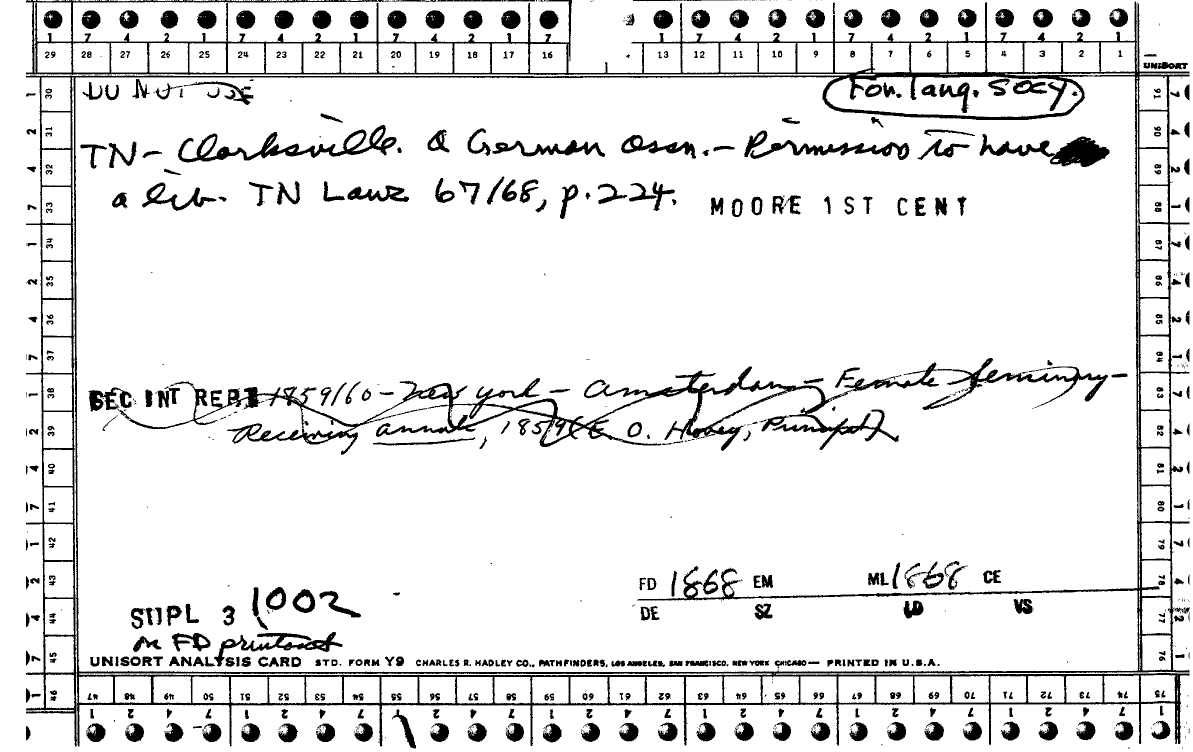 1 7 4 2 1 7 4 2 1 7 4 2 1 7 1 7 4 2 1 7 4 2 1 7 4 2 1
29 28 27 26 25 24 23 22 21 20 19 18 17 16 13 12 11 10 9 8 7 6 5 4 3 2 1
UNISORT
DO NOT USE
For. lang. Socy.
TN - Clarksville. A German Assn. - Permission to have
a lib. TN Laws 67/68, p. 224. MOORE 1ST CENT
SEC INT REPT 1859/60 - New York - Amsterdam - Female Seminary -
Receiving annals, 1859 (E. O. Hovey, Principal)
FD 1868 EM ML 1868 CE
DE SZ LD VS
SUPL 3 1002
on FD printout
UNISORT ANALYSIS CARD STD. FORM Y9 CHARLES R. HADLEY CO., PATHFINDERS, LOS ANGELES, SAN FRANCISCO, NEW YORK CHICAGO — PRINTED IN U.S.A.
47 48 49 50 51 52 53 54 55 56 57 58 59 60 61 62 63 64 65 66 67 68 69 70 71 72 73 74 75
1 2 4 7 1 2 4 7 1 2 4 7 1 2 4 7 1 2 4 7 1 2 4 7 1 2 4 7 1